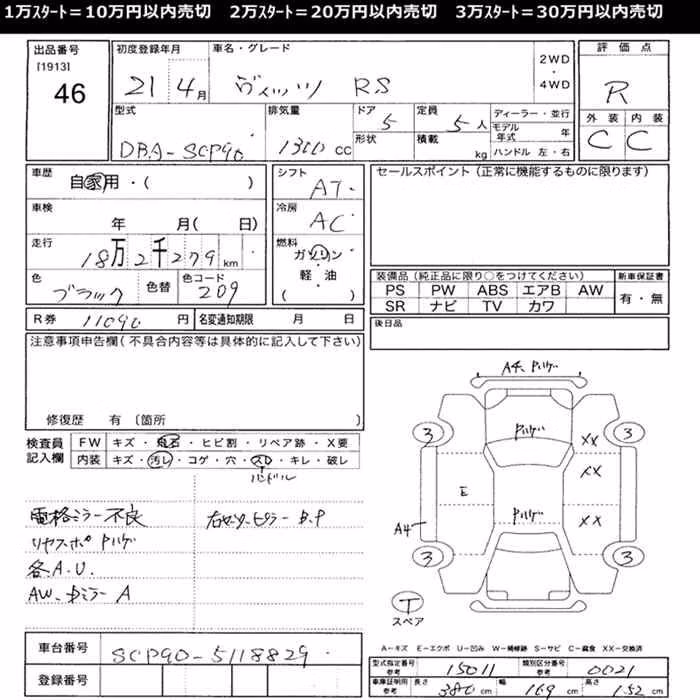 1万ｽﾀｰﾄ＝10万円以内売切　2万ｽﾀｰﾄ＝20万円以内売切　3万ｽﾀｰﾄ＝30万円以内売切
出品番号
[1913]
46
初度登録年月
21 4月
車名・グレード
ヴィッツ RS
2WD
・
4WD
評価点
R
外装 内装
C C
型式
DBA-SCP90
排気量
1300 cc
ドア
5
形状
定員
5人
積載
kg
ディーラー・並行
モデル年式 年
ハンドル 左・右
車歴
自家用・( )
車検
年 月( 日)
走行
18万2千279km
色
ブラック
色替
色コード
209
シフト
AT
冷房
AC
燃料
ガソリン
軽・油
( )
R券 11090 円
名変通知期限 月 日
セールスポイント（正常に機能するものに限ります）
装備品（純正品に限り○をつけてください）
PS PW ABS エアB AW
SR ナビ TV カワ
新車保証書
有・無
後日品
注意事項申告欄（不具合内容等は具体的に記入して下さい）
修復歴 有〔箇所 〕
検査員記入欄
FW キズ・飛石・ヒビ割・リペア跡・X要
内装 キズ・汚レ・コゲ・穴・スレ・キレ・破レ
ハンドル
電格ミラー不良
リヤスポ Pハゲ
各A.U.
AW、ミラー A
車台番号 SCP90-5118829
登録番号
A4、Pハゲ
3 Pハゲ XX 3
XX
E
Pハゲ XX
A4
3 3
T
スペア
A－キズ E－エクボ U－凹み W－補修跡 S－サビ C－腐食 XX－交換済
型式指定番号 参考 15011
類別区分番号 参考 0021
車庫証明用 参考
長さ 380cm
幅 169cm
高さ 152cm